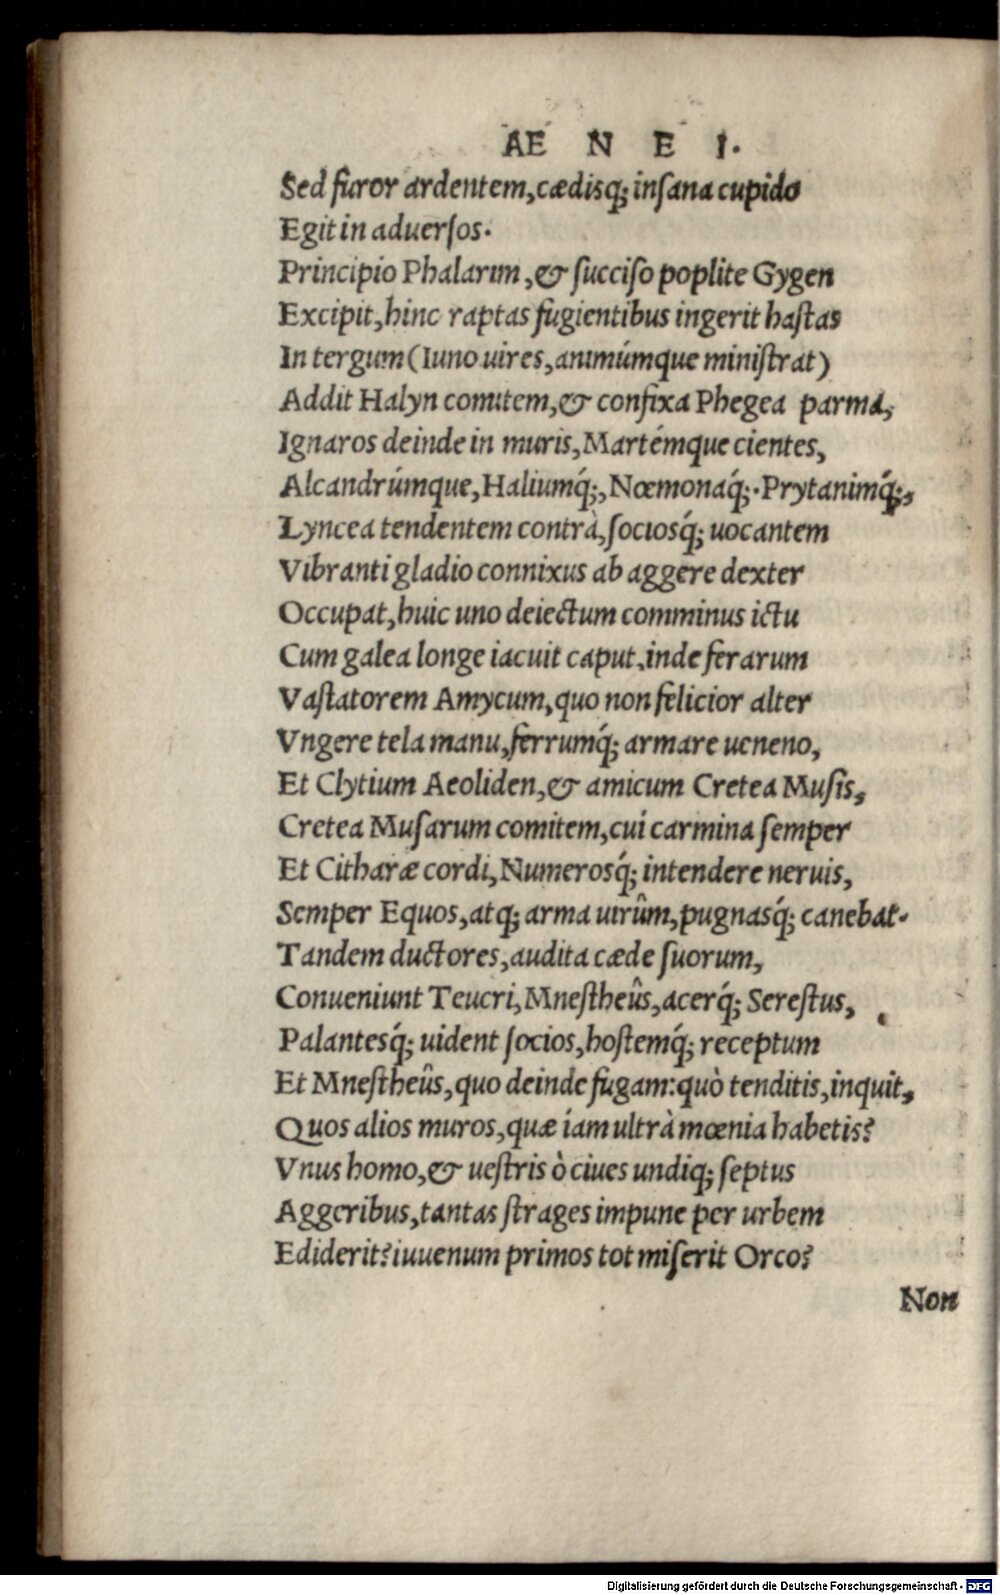 AE N E I.
Sed furor ardentem, cædisq; insana cupido
Egit in aduersos.
Principio Phalarim, & succiso poplite Gygen
Excipit, hinc raptas fugientibus ingerit hastas
In tergum (Iuno uires, animúmque ministrat)
Addit Halyn comitem, & confixa Phegea parma,
Ignaros deinde in muris, Martémque cientes,
Alcandrúmque, Haliumq́;, Nœmonaq́;. Prytanimq́;,
Lyncea tendentem contrà, sociosq́; uocantem
Vibranti gladio connixus ab aggere dexter
Occupat, huic uno deiectum comminus ictu
Cum galea longe iacuit caput, inde ferarum
Vastatorem Amycum, quo non felicior alter
Vngere tela manu, ferrumq́; armare ueneno,
Et Clytium Aeoliden, & amicum Cretea Musis,
Cretea Musarum comitem, cui carmina semper
Et Citharæ cordi, Numerosq́; intendere neruis,
Semper Equos, atq; arma uirûm, pugnasq́; canebat.
Tandem ductores, audita cæde suorum,
Conueniunt Teucri, Mnestheûs, acerq́; Serestus,
Palantesq́; uident socios, hostemq́; receptum
Et Mnestheûs, quo deinde fugam: quò tenditis, inquit,
Quos alios muros, quæ íam ultrà mœnia habetis?
Vnus homo, & uestris ò ciues undiq; septus
Aggeribus, tantas strages impune per urbem
Ediderit? iuuenum primos tot miserit Orco?
Non
Digitalisierung gefördert durch die Deutsche Forschungsgemeinschaft - DFG